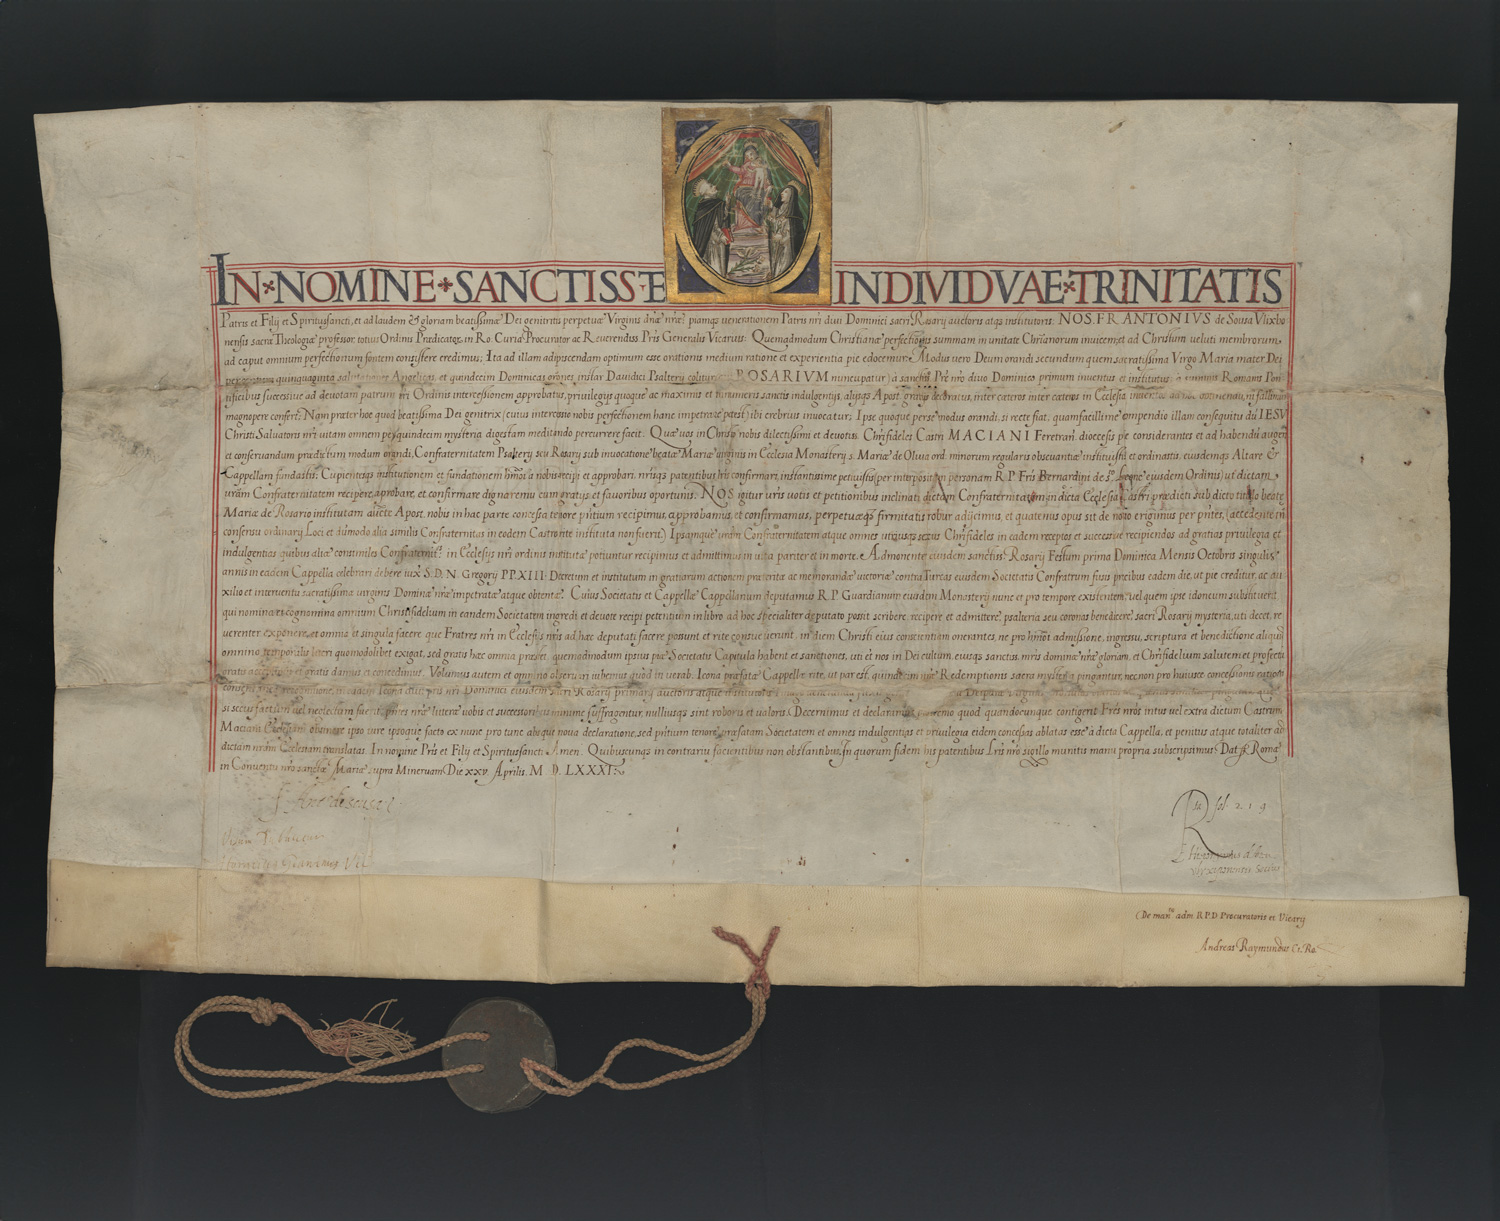 IN NOMINE SANCTISS E INDIVIDVAE TRINITATIS
Patris et Filij et Spiritussancti, et ad laudem & gloriam beatissimæ Dei genitricis perpetuæ Virginis dnæ nræ piamqs venerationem Patris nri diui Dominici sacri Rosarij auctoris atqs institutoris. NOS. FR ANTONIVS de Sousa Vlixbo
nensis sacræ Theologiæ professor, totius Ordinis Prædicator, in Ro. Curia Procurator ac Reuerendiss. Pris Generalis Vicarius. Quemadmodum Christianæ perfectionis summam in unitate Chrianorum inuicem, et ad Christum veluti membrorum
ad caput omnium perfectionum fontem consistere credimus; Ita ad illam adipiscendam optimum esse orationis medium ratione et experientia pie edocemur. Modus vero Deum orandi secundum quem sacratissima Virgo Maria mater Dei
quinquaginta Angelicas, et quindecim Dominicas orones instar Dauidici Psalterij colitur ROSARIVM nuncupatur) à sanctiss. Pre nro diuo Dominico primum inuentus et institutus, à summis Romanis Pon
tificibus successiue ad deuotam patrum nri Ordinis intercessionem approbatus, priuilegijs quoque ac maximis et innumeris sanctis indulgentijs, alijsqs Apost. gratijs decoratus, inter cæteros inter cæteros in Ecclesia ni fallimur
magnopere confert. Nam præter hoc quod beatissima Dei genitrix (cuius intercessio nobis perfectionem hanc impetrare potest) ibi crebrius inuocatur; Ipse quoque per se modus orandi, si recte fiat, quam facillime ompendio illam consequitur dū IESV
Christi Saluatoris nri vitam omnem per quindecim mysteria digestam meditando percurrere facit. Quæ vos in Christo nobis dilectissimi et deuotis. Chrifideles Castri MACIANI Feretran. diœcesis pie considerantes et ad habendū augen
et conseruandum prædictum modum orandi, Confraternitatem Psalterij seu Rosarij sub inuocatione beatæ Mariæ virginis in Ecclesia Monasterij s. Mariæ de Oliua ord. minorum regularis obseruantiæ instituistis et ordinastis, eiusdemqs Altare &
Cappellam fundastis; Cupientesqs institutionem et fundationem à nobis recipi et approbari, nrisqs patentibus lris confirmari, instantissime petiuistis (per interpositam personam R. P. Fris Bernardini de eiusdem Ordinis) ut dictam
uram Confraternitatem recipere, aprobare, et confirmare dignaremur cum gratijs et fauoribus oportunis. NOS igitur uris uotis et petitionibus inclinati dictam Confraternitatem in dicta Ecclesia Castri prædicti sub dicto titulo beatæ
Mariæ de Rosario institutam aucte Apost. nobis in hac parte concessa tenore pntium recipimus, approbamus, et confirmamus, perpetuæqs firmitatis robur adijcimus, et quatenus opus sit de nouo erigimus per pntes, (accedente tn
consensu ordinarij Loci et dūmodo alia similis Confraternitas in eodem Castro rite instituta non fuerit) Ipsamque uram Confraternitatem atque omnes utriusqs sexus Chrifideles in eadem receptos et successiue recipiendos ad gratias priuilegia et
indulgentias quibus aliæ consimiles Confraternit. in Ecclesijs nri ordinis institutæ potiuntur recipimus et admittimus in uita pariter et in morte. Admonentes eiusdem sanctiss. Rosarij Festum prima Dominica Mensis Octobris singulis
annis in eadem Cappella celebrari debere iux. S. D. N. Gregorij PP. XIII. Decretum et institutum in gratiarum actionem præteritæ ac memorandæ victoriæ contra Turcas eiusdem Societatis Confratrum fusis præcibus eadem die, ut pie creditur, ac au
xilio et interuentu sacratissimæ virginis Dominæ nræ impetratæ atque obtentæ. Cuius Societatis et Cappellæ Cappellanum deputamus R. P. Guardianum eiusdem Monasterij nunc et pro tempore existentem, vel quem ipse idoneum substituerit
qui nomina et cognomina omnium Christifidelium in eandem Societatem ingredi et deuote recipi petentium in libro ad hoc specialiter deputato possit scribere, recipere, et admittere, psalteria seu coronas benedicere, sacri Rosarij mysteria, uti decet, re
uerenter exponere, et omnia et singula facere que Fratres nri in Ecclesijs nris ad hæc deputati facere possunt et rite consueuerunt, in diem Christi eius conscientiam onerantes, ne pro admissione, ingressu, scriptura et benedictione aliquid
omnino temporalis lucri quomodolibet exigat, sed gratis hæc omnia præbet, quemadmodum ipsius piæ Societatis Capitula habent et sanctiones, uti et nos in Dei cultum, eiusqs sanctiss. mris dominæ nræ gloriam, et Chrifidelium salutem et profectū
gratis et gratis damus et concedimus. Volumus autem et omnino obseruari iubemus quod in uerab. Icona præfatæ Cappellæ rite, ut par est, quindecim nræ Redemptionis sacra mysteria pingantur, nec non pro huiusce concessionis
in eadem Icona diui pris nri Dominici eiusdem sacri Rosarij primarij auctoris atque institutoris Deiparæ Virginis
si secus factum uel neglectum fuerit, pntes nræ litteræ uobis et successoribus minime suffragentur, nulliusqs sint roboris et ualoris. Decernimus et declaramus quod quandocunque contigerit Fres nros intus uel extra dictum Castrum
Maciani Ecclesiam obtinere ipso iure ipsoque facto ex nunc pro tunc absque noua declaratione, sed pntium tenore præfatam Societatem et omnes indulgentias et priuilegia eidem concessas ablatas esse à dicta Cappella, et penitus atque totaliter ad
dictam nram Ecclesiam translatas. In nomine Pris et Filij et Spiritussancti Amen. Quibuscunqs in contrariū facientibus non obstantibus. In quorum fidem his patentibus Lris nro sigillo munitis manu propria subscripsimus Dat. Romæ
in Conuentu nro sanctæ Mariæ supra Mineruam Die xxv Aprilis. M. D. LXXXI.
Rta fol. 219
(De man. adm. R. P. D. Procuratoris et Vicarij
Andreas Raymundus